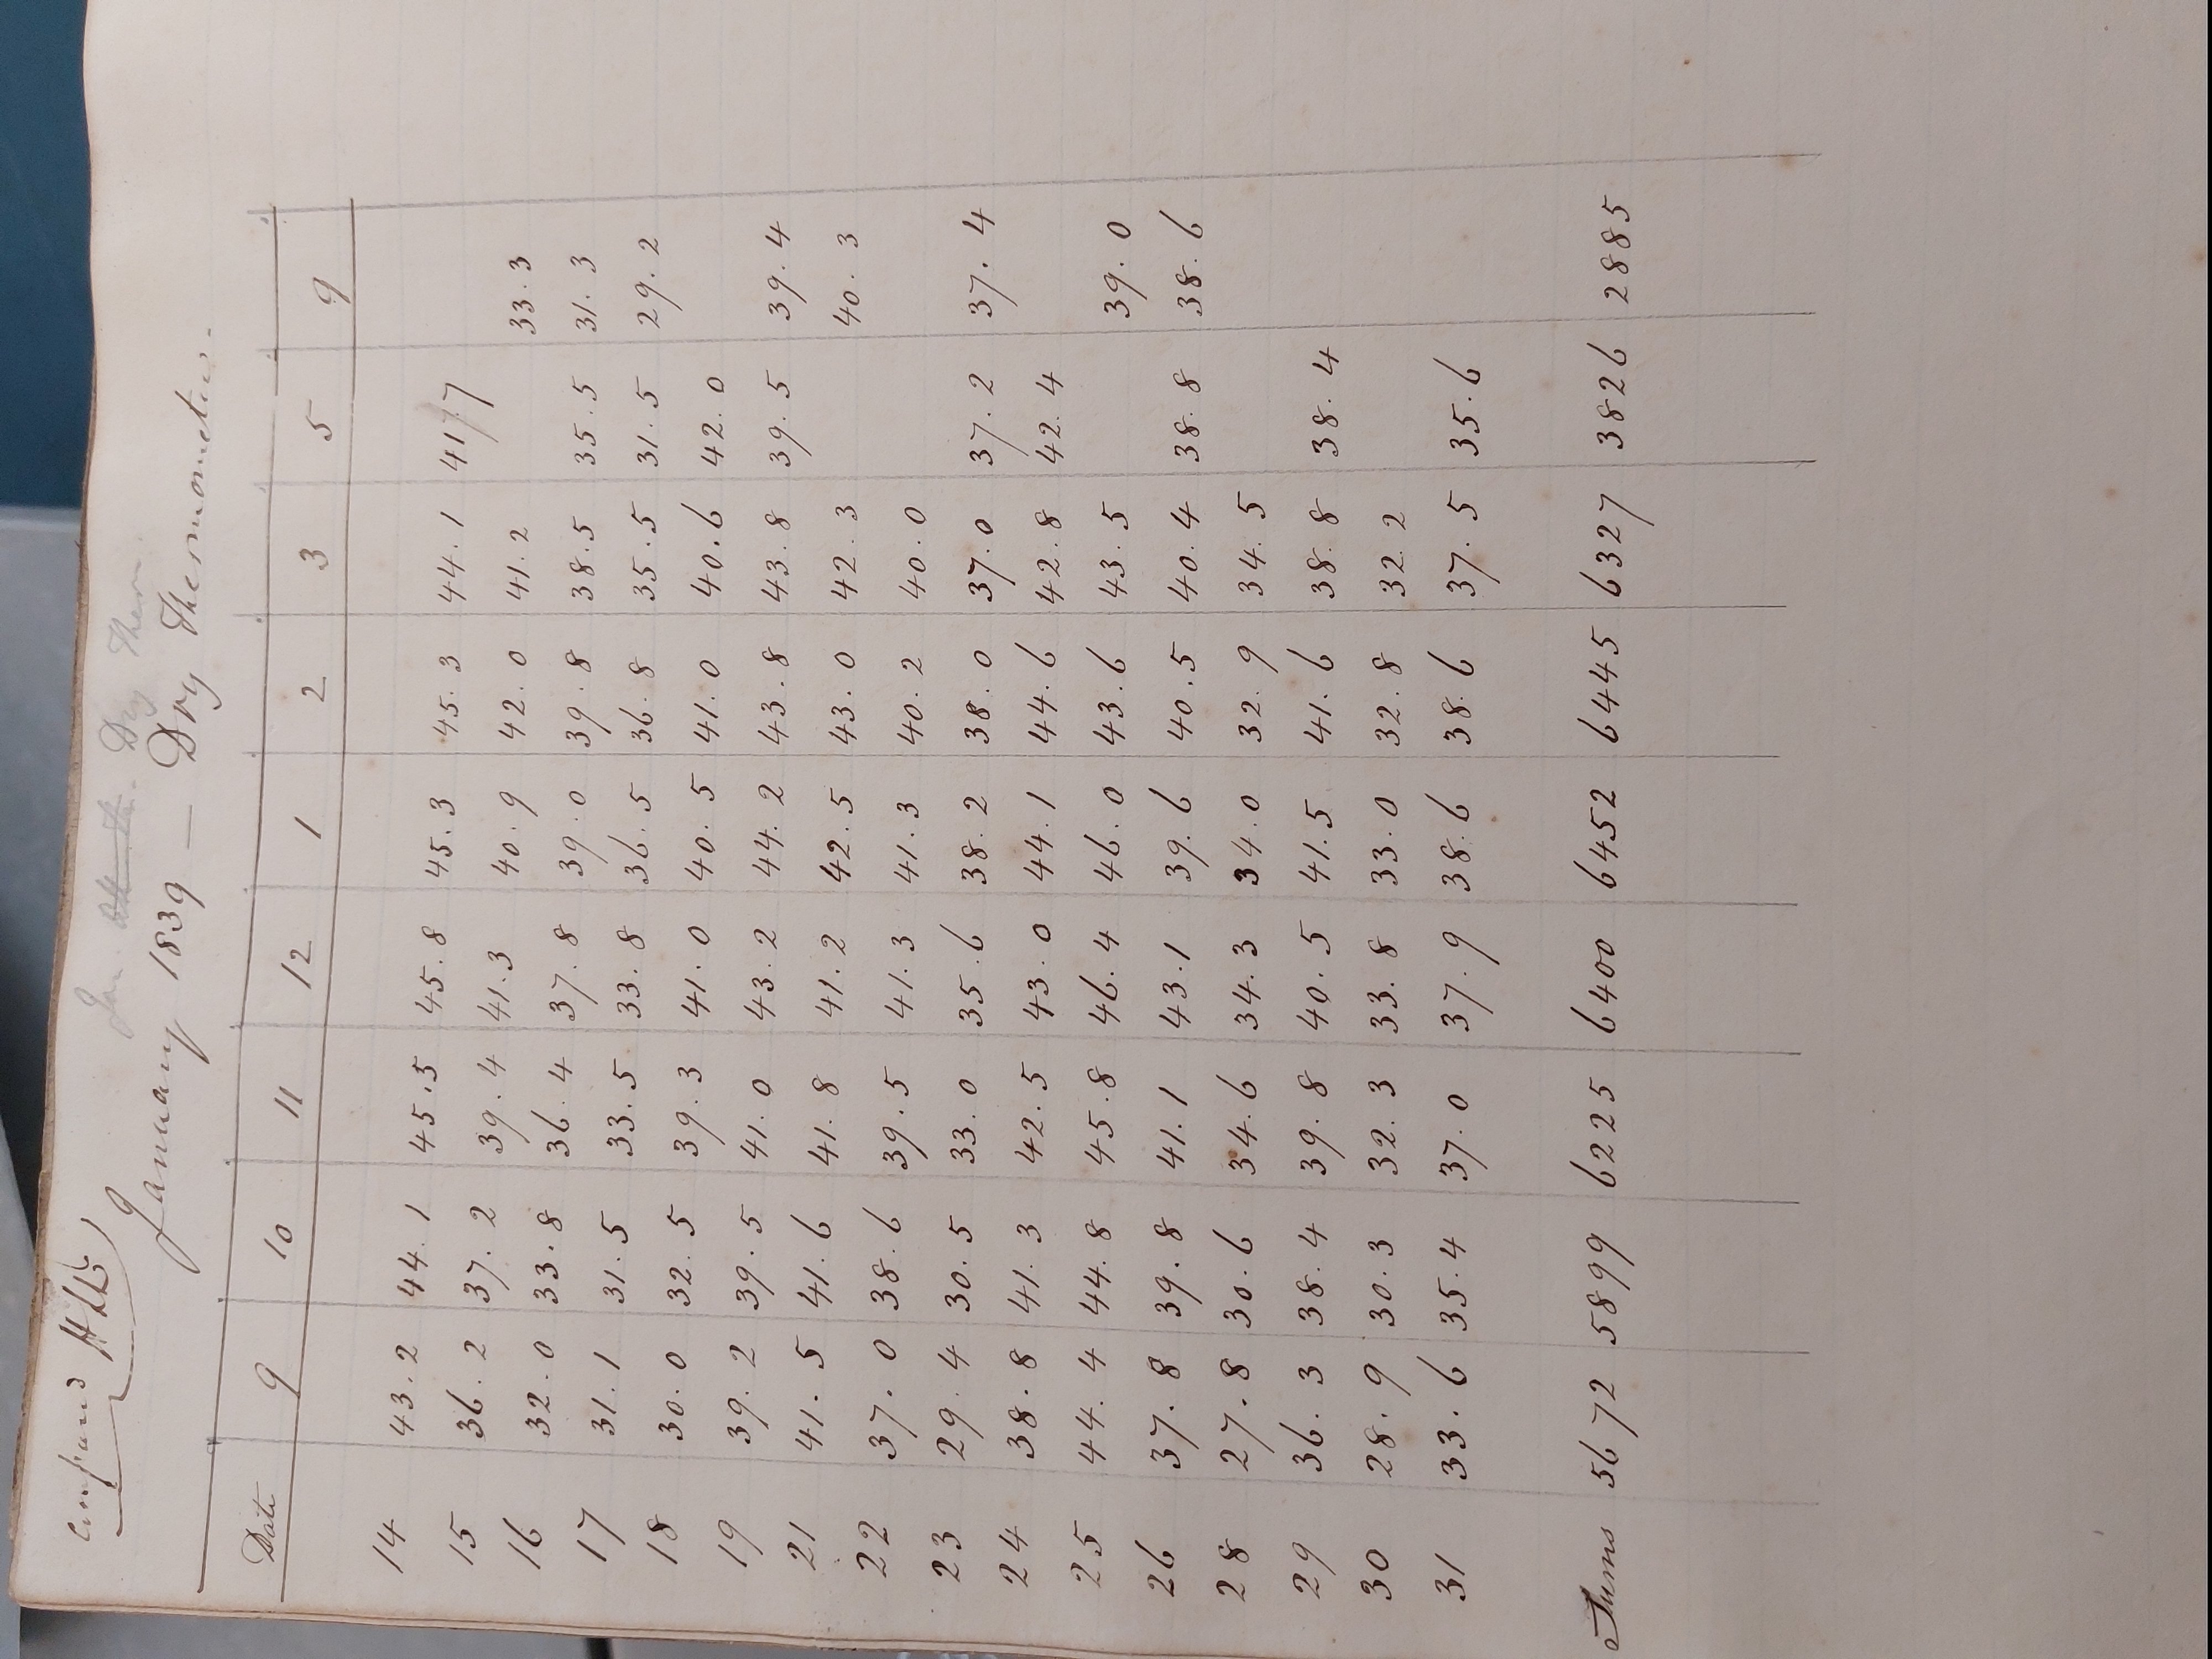 compared
Jan. Dry Therm.
January 1839 — Dry Thermometer.
Date 9 10 11 12 1 2 3 5 9
14 43.2 44.1 45.5 45.8 45.3 45.3 44.1 41.7
15 36.2 37.2 39.4 41.3 40.9 42.0 41.2 33.3
16 32.0 33.8 36.4 37.8 39.0 39.8 38.5 35.5 31.3
17 31.1 31.5 33.5 33.8 36.5 36.8 35.5 31.5 29.2
18 30.0 32.5 39.3 41.0 40.5 41.0 40.6 42.0
19 39.2 39.5 41.0 43.2 44.2 43.8 43.8 39.5 39.4
21 41.5 41.6 41.8 41.2 42.5 43.0 42.3 40.3
22 37.0 38.6 39.5 41.3 41.3 40.2 40.0
23 29.4 30.5 33.0 35.6 38.2 38.0 37.0 37.2 37.4
24 38.8 41.3 42.5 43.0 44.1 44.6 42.8 42.4
25 44.4 44.8 45.8 46.4 46.0 43.6 43.5 39.0
26 37.8 39.8 41.1 43.1 39.6 40.5 40.4 38.8 38.6
28 27.8 30.6 34.6 34.3 34.0 32.9 34.5
29 36.3 38.4 39.8 40.5 41.5 41.6 38.8 38.4
30 28.9 30.3 32.3 33.8 33.0 32.8 32.2
31 33.6 35.4 37.0 37.9 38.6 38.6 37.5 35.6
Sums 5672 5899 6225 6400 6452 6445 6327 3826 2885